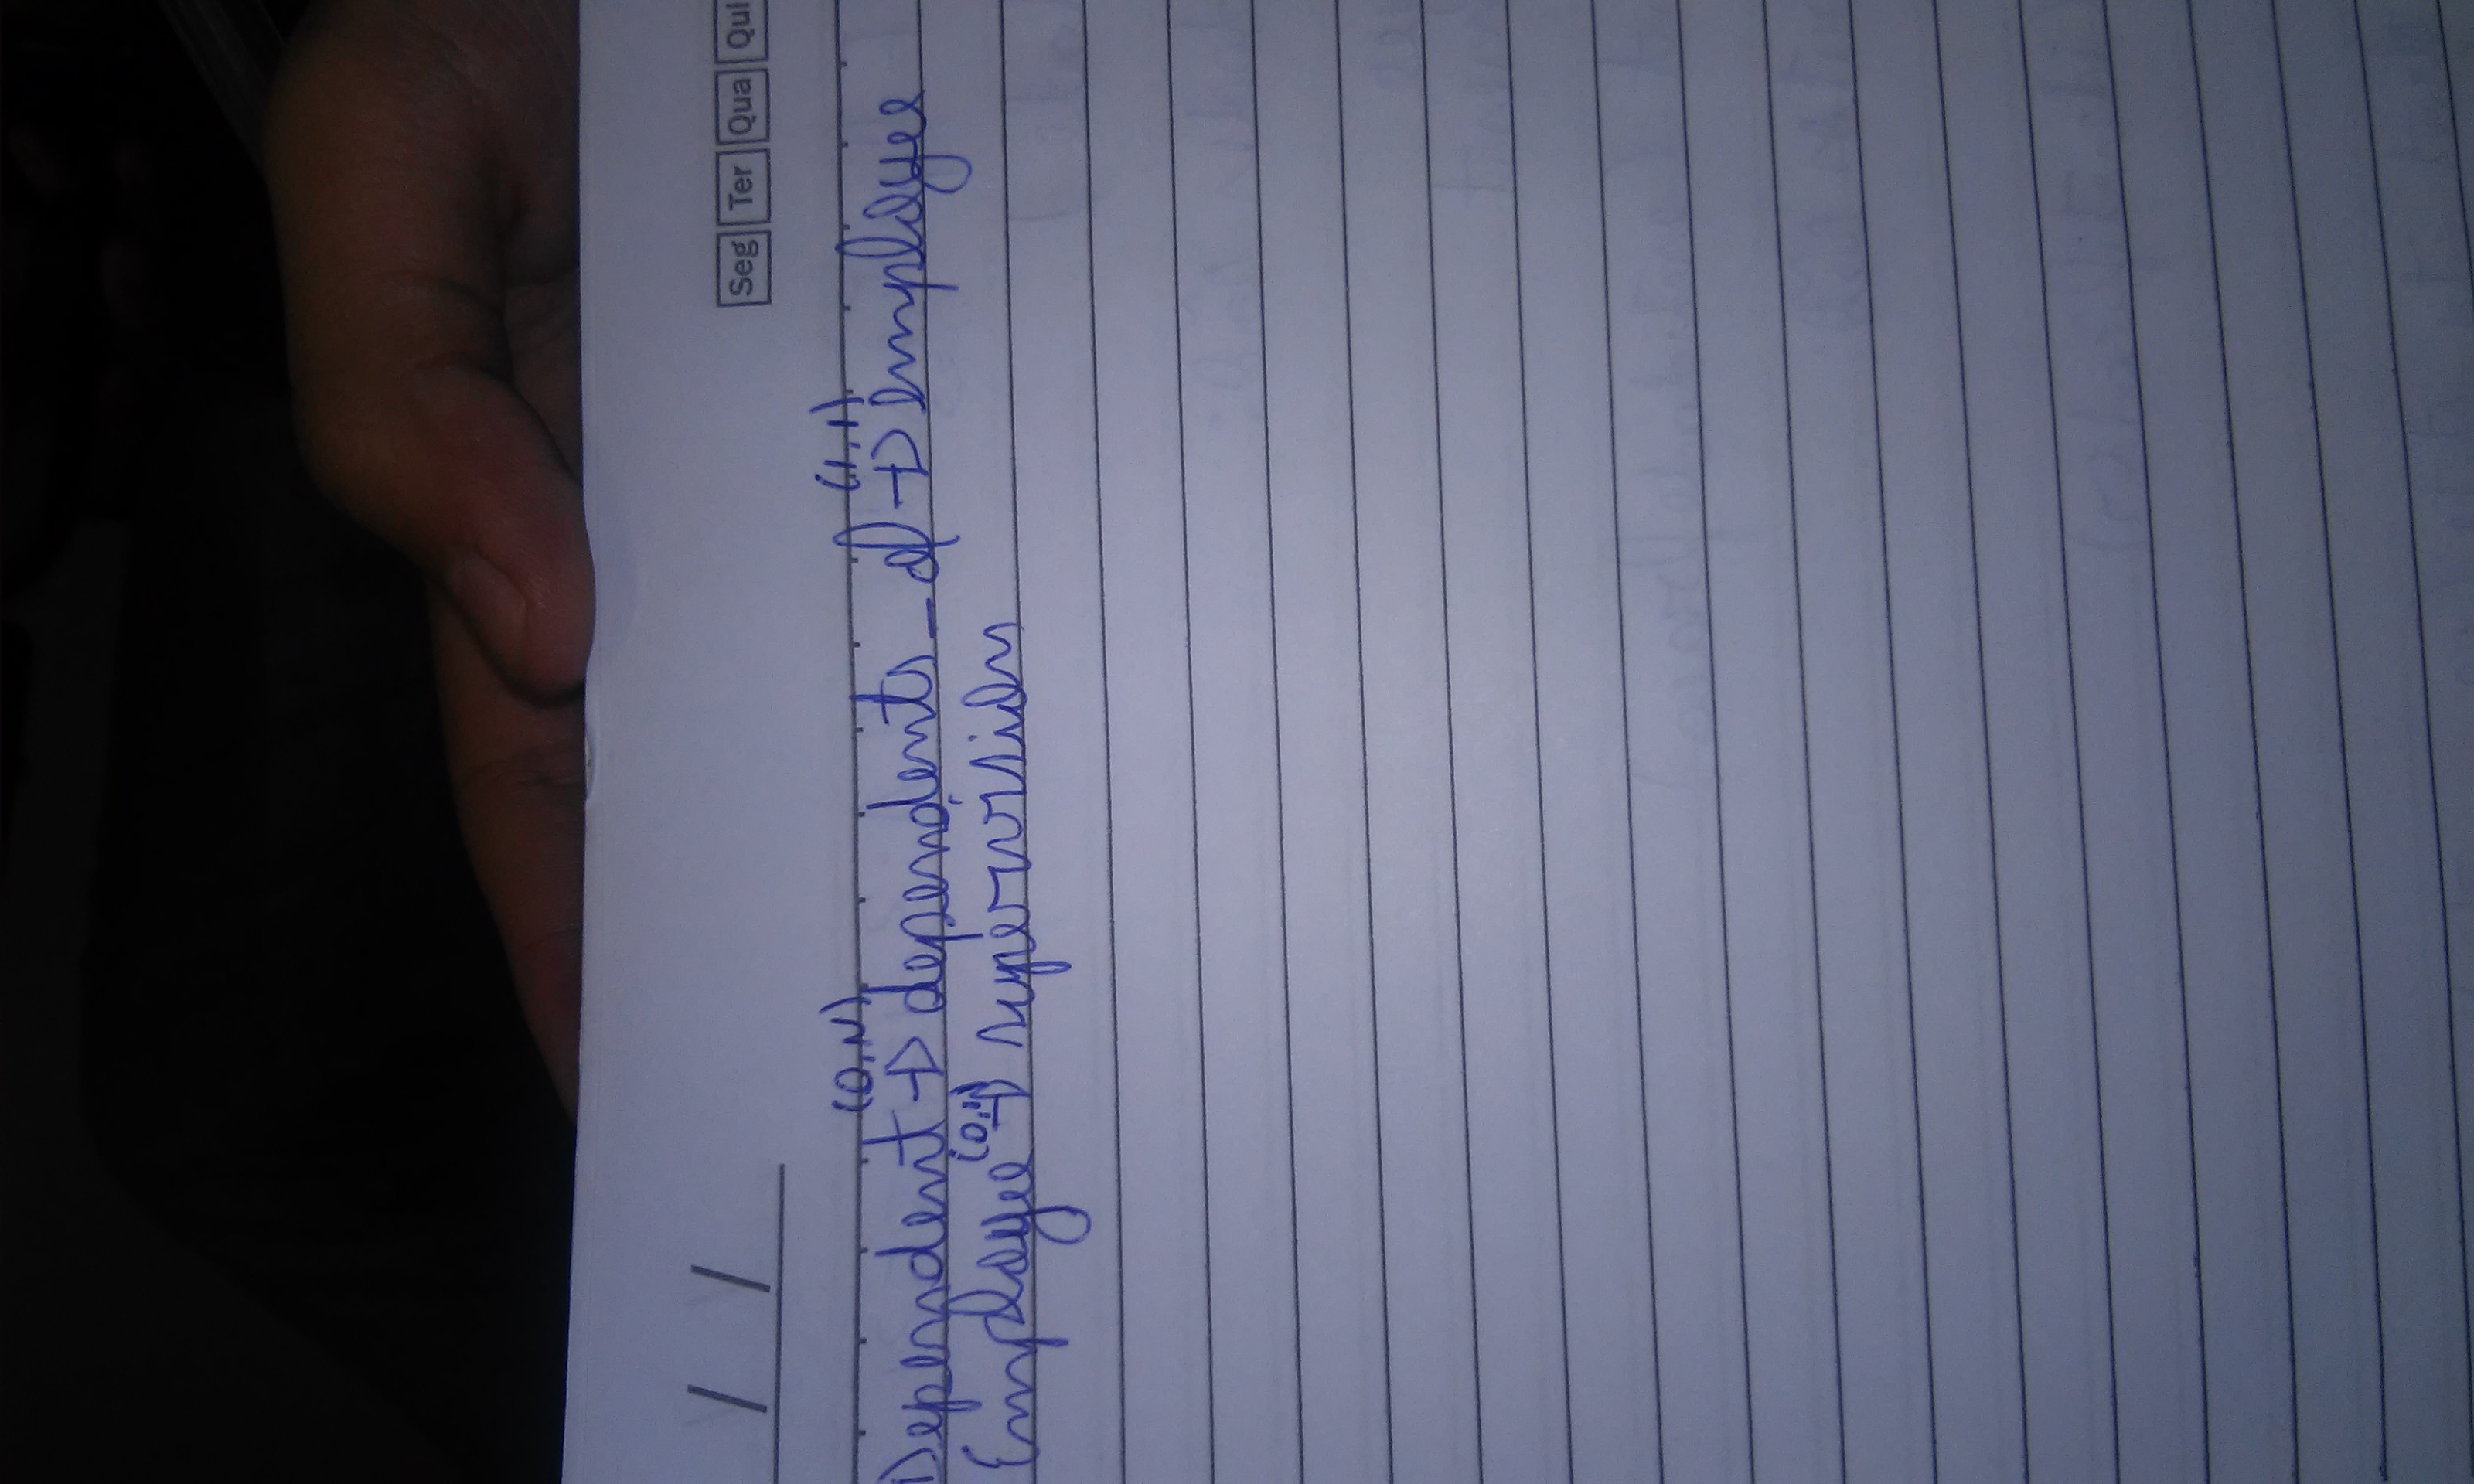 / /
Seg Ter Qua Qui
(0,N) (1,1)
Dependent → dependents_of → employee
(0,N)
Employee → supervision